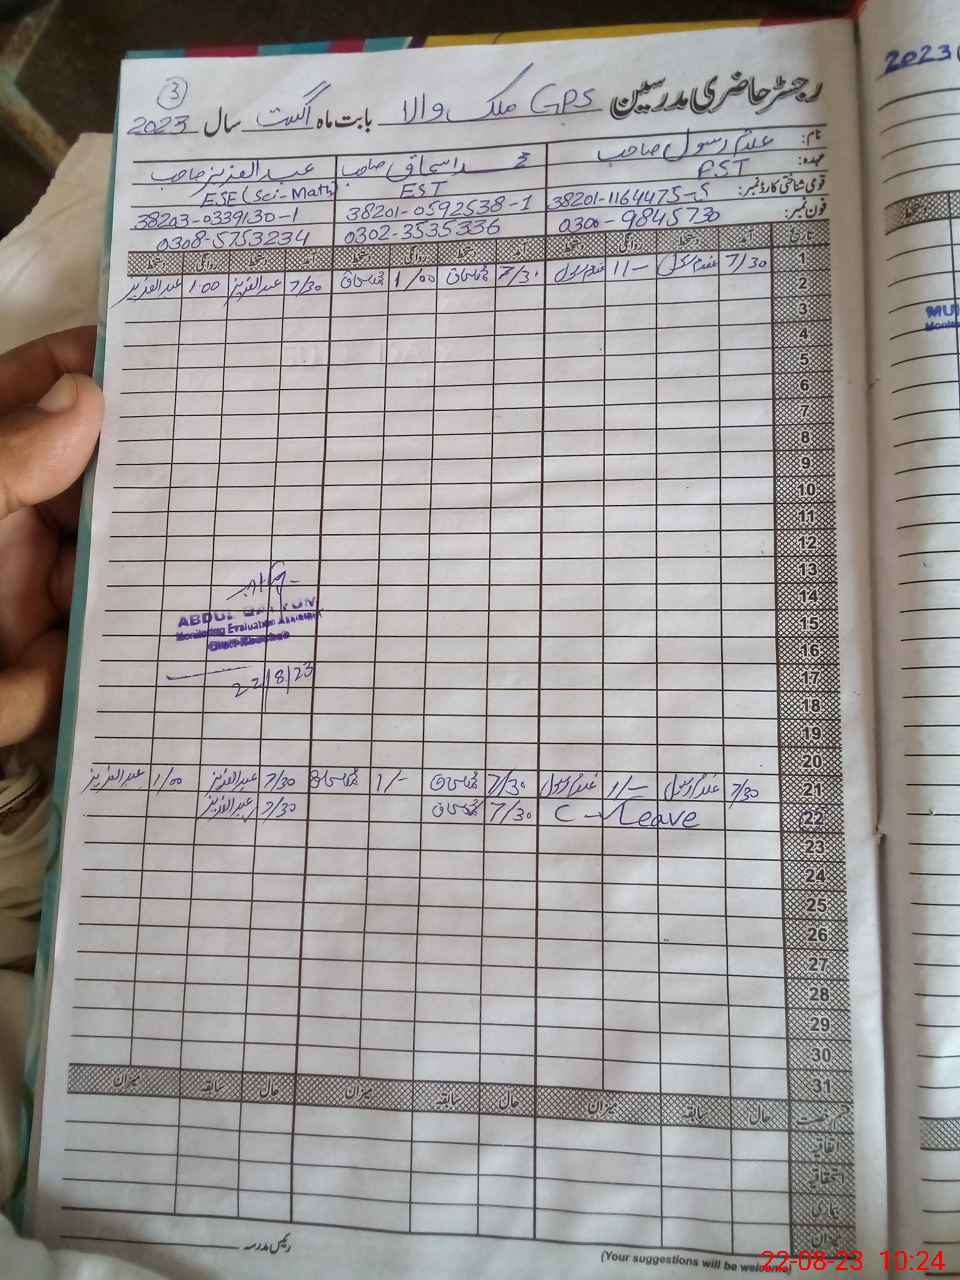 3
رجسٹر حاضری مدرسین GPS ملک والا بابت ماہ اگست سال 2023
نام: غلام رسول صاحب محمد اسحاق صاحب عبدالعزیز صاحب
عہدہ: PST EST ESE (Sci-Math)
قومی شناختی کارڈ نمبر: 38201-1164475-5 38201-0592538-1 38203-0339130-1
فون نمبر: 0300-9845730 0302-3535336 0308-5753234
تاریخ آمد دستخط روانگی دستخط آمد دستخط روانگی دستخط آمد دستخط روانگی دستخط
1 7/30 غلام رسول 1/- غلام رسول 7/30 محمد اسحاق 1/00 محمد اسحاق 7/30 عبدالعزیز 1.00 عبدالعزیز
2
3
4
5
6
7
8
9
10
11
12
13
14
15
16
17
18
19
20
21 7/30 غلام رسول 1/- غلام رسول 7/30 محمد اسحاق 1/- محمد اسحاق 7/30 عبدالعزیز 1/00 عبدالعزیز
22 C-Leave 7/30 محمد اسحاق 7/30 عبدالعزیز
23
24
25
26
27
28
29
30
31
ABDUL
Monitoring Evaluation Assistant
22/8/23
حال سابقہ میزان حال سابقہ میزان حال سابقہ میزان
اتفاقیہ
استحقاقیہ
بیماری
میزان
رئیس مدرسہ
(Your suggestions will be welcome)
2023
دستخط
MU
Monito
22-08-23 10:24